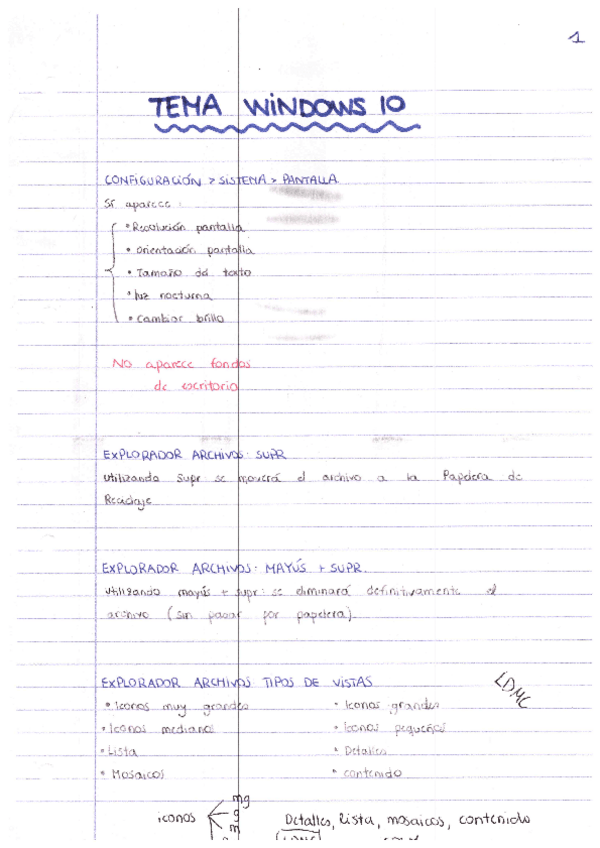 1
TEMA WINDOWS 10
CONFIGURACIÓN > SISTEMA > PANTALLA
Sí aparece:
• Resolución pantalla
• Orientación pantalla
• Tamaño del texto
• Luz nocturna
• Cambiar brillo
No aparece fondos
de escritorio
EXPLORADOR ARCHIVOS: SUPR
Utilizando Supr se moverá el archivo a la Papelera de
Reciclaje
EXPLORADOR ARCHIVOS: MAYÚS + SUPR.
Utilizando mayús + supr: se eliminará definitivamente el
archivo (sin pasar por papelera)
EXPLORADOR ARCHIVOS TIPOS DE VISTAS
LDMC
• Iconos muy grandes • Iconos grandes
• Iconos medianos • Iconos pequeños
• Lista • Detalles
• Mosaicos • contenido
mg
iconos g Detalles, Lista, mosaicos, contenido
m